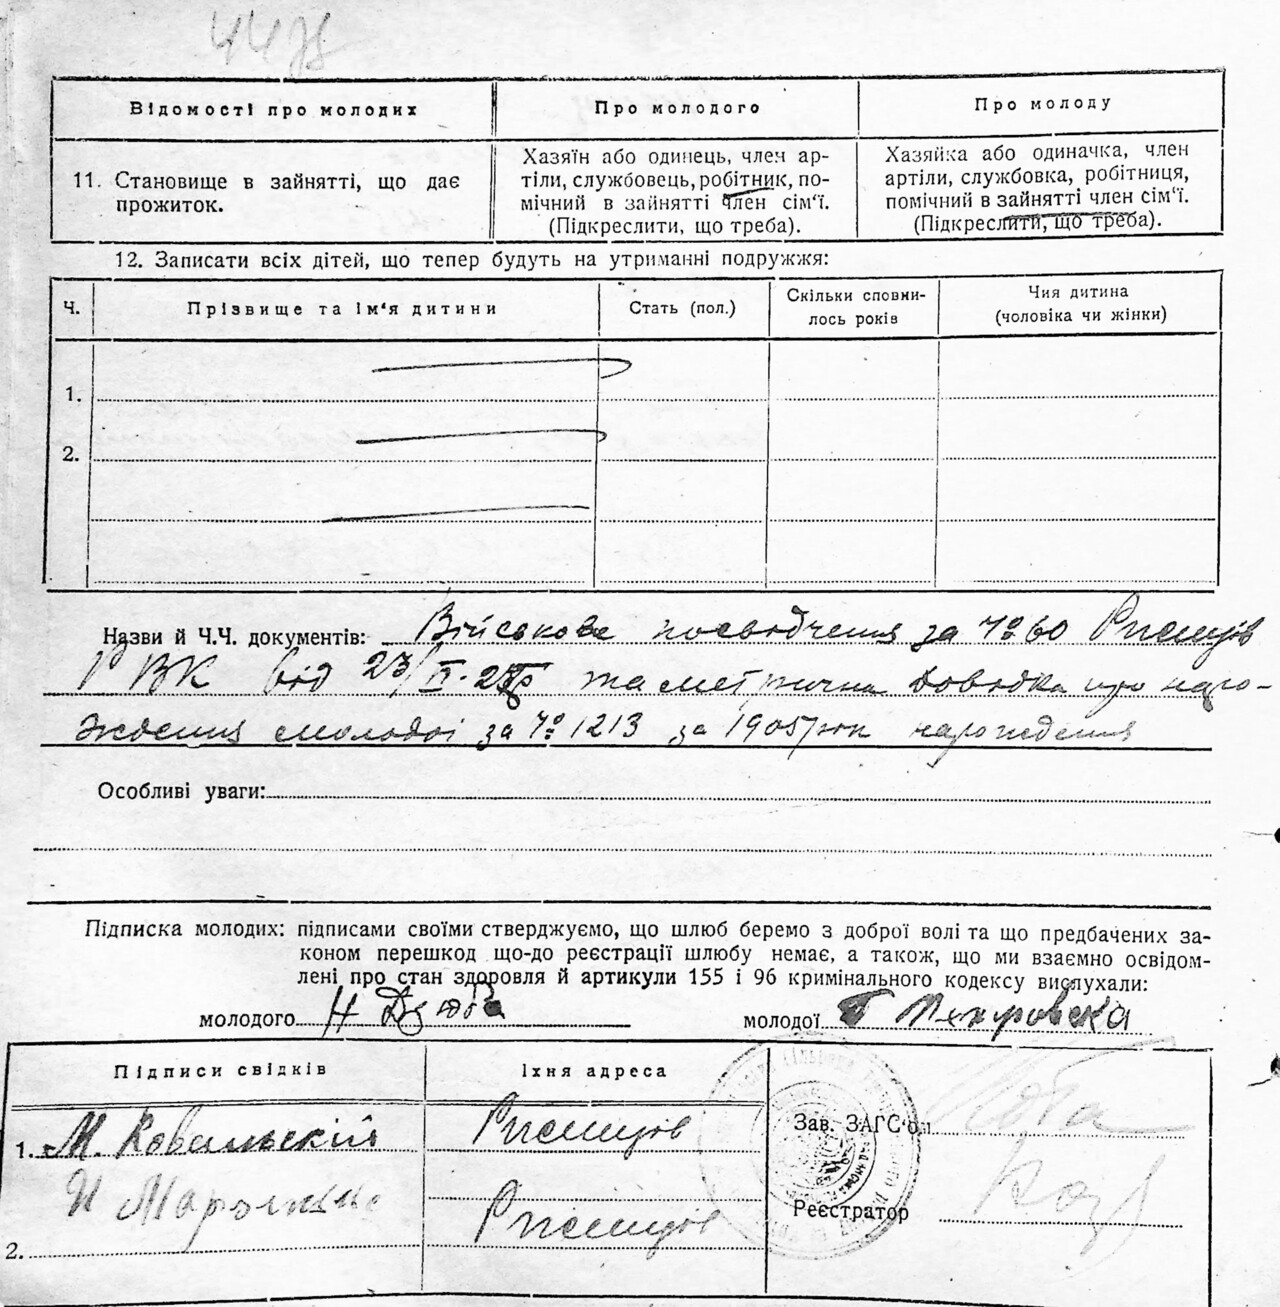 Відомості про молодих
Про молодого
Про молоду
11. Становище в зайнятті, що дає
прожиток.
Хазяїн або одинець, член ар-
тіли, службовець, робітник, по-
мічний в зайнятті член сім'ї.
(Підкреслити, що треба).
Хазяйка або одиначка, член
артіли, службовка, робітниця,
помічний в зайнятті член сім'ї.
(Підкреслити, що треба).
12. Записати всіх дітей, що тепер будуть на утриманні подружжя:
Ч.
Прізвище та ім'я дитини
Стать (пол.)
Скільки сповни-
лось років
Чия дитина
(чоловіка чи жінки)
1.
2.
Назви й Ч.Ч. документів: Військове посвідчення за № 60 Ржищів
РВК від 23/ та метрична довідка про наро-
ждення молодої за № 1213 за 1905 рік нарождення
Особливі уваги:
Підписка молодих: підписами своїми стверджуємо, що шлюб беремо з доброї волі та що предбачених за-
коном перешкод що-до реєстрації шлюбу немає, а також, що ми взаємно освідом-
лені про стан здоровля й артикули 155 і 96 кримінального кодексу вислухали:
молодого Н Дзюба
молодої
Підписи свідків
Їхня адреса
1. М. Ковальскій
Ржищів
Зав. ЗАГС'ом
2.
Ржищів
Реєстратор